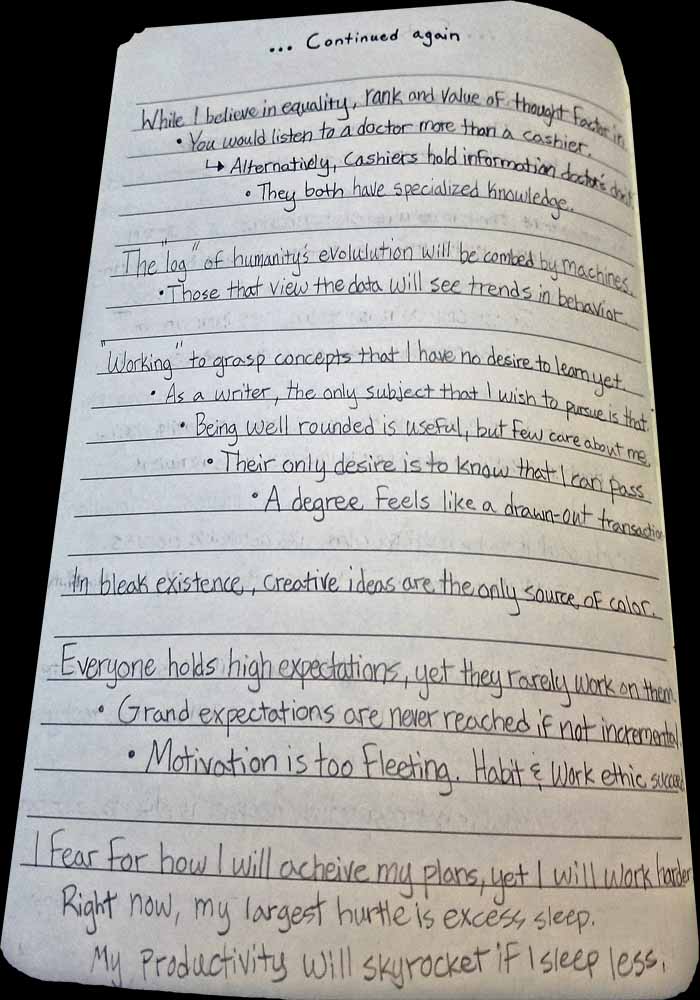 ... Continued again
While I believe in equality, rank and value of thought factor in.
• You would listen to a doctor more than a cashier.
↳ Alternatively, cashiers hold information doctor's don't
• They both have specialized knowledge.
The "log" of humanity's evolulution will be combed by machines.
• Those that view the data will see trends in behavior.
"Working" to grasp concepts that I have no desire to learn yet.
• As a writer, the only subject that I wish to pursue is that.
• Being well rounded is useful, but few care about me.
• Their only desire is to know that I can pass
• A degree feels like a drawn-out transaction
In bleak existence, creative ideas are the only source of color.
Everyone holds high expectations, yet they rarely work on them.
• Grand expectations are never reached if not incremental.
• Motivation is too fleeting. Habit & work ethic succeed
I fear for how I will acheive my plans, yet I will work harder
Right now, my largest hurtle is excess sleep.
My productivity will skyrocket if I sleep less.